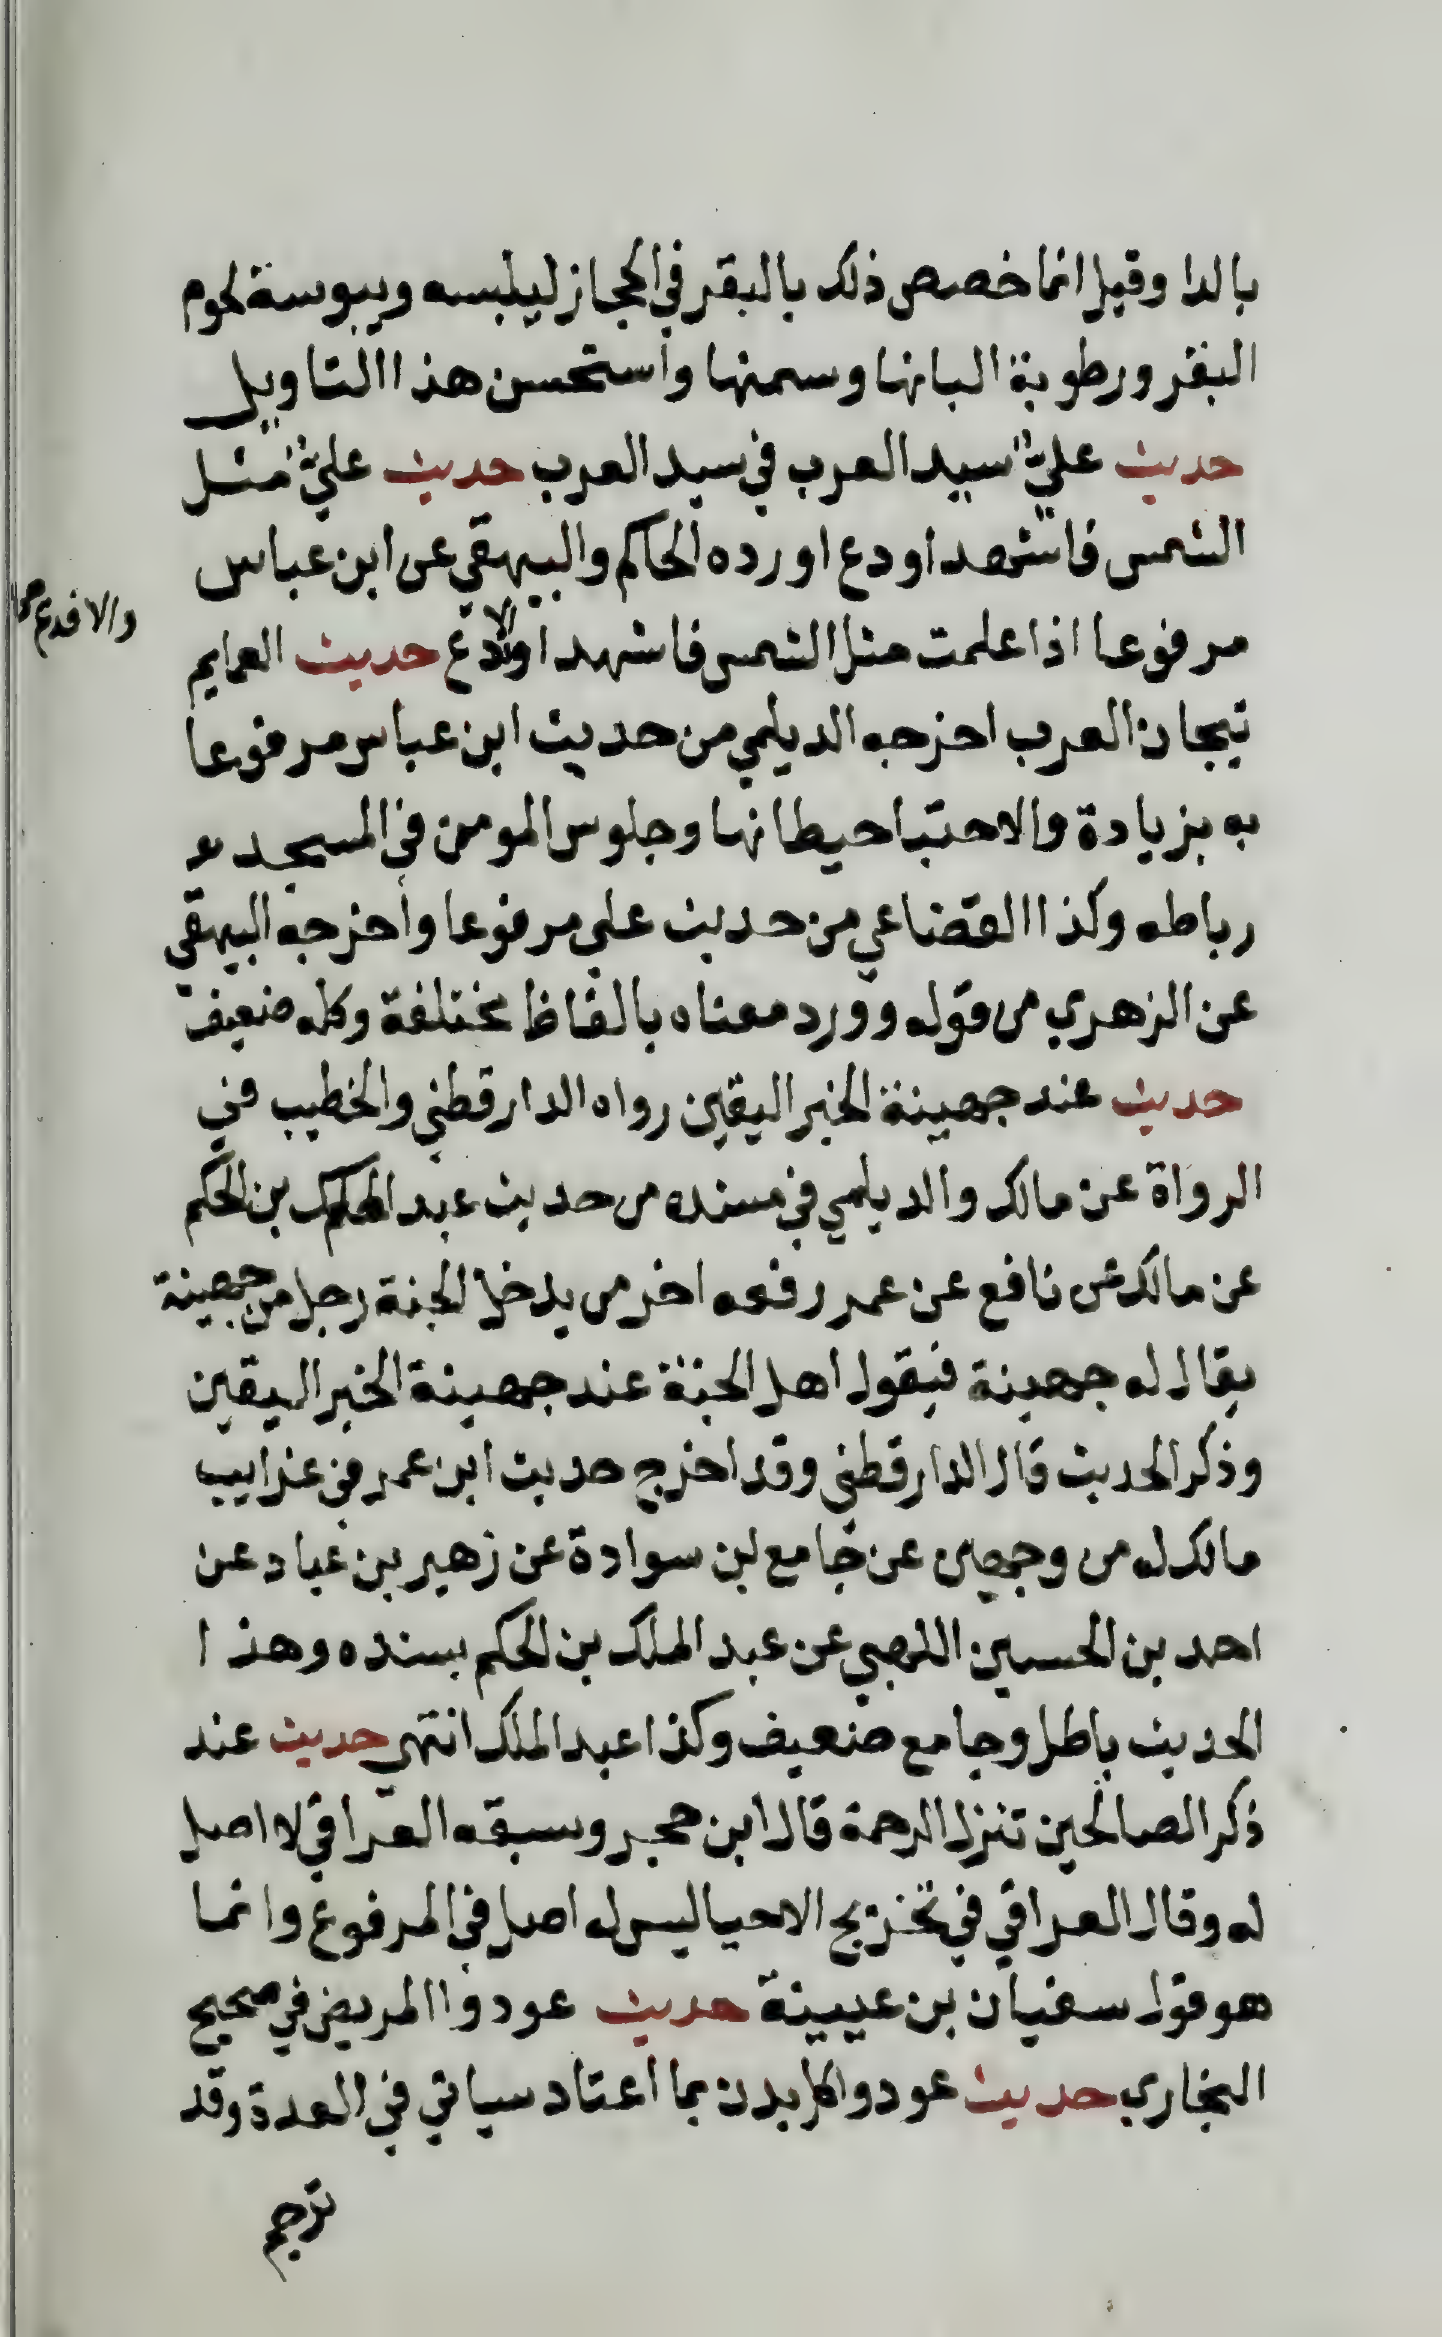 بالدا وقيل انما خصص ذلك بالبقر في الحجاز ليلبسه ويبوسة لحوم
البقر ورطوبة البانها وسمنها واستحسن هذا التاويل
حديث علي سيد العرب في سيد العرب حديث علي مثل
الشمس فاشهد اودع اورده الحاكم والبيهقي عن ابن عباس
والا فدع
مرفوعا اذا علمت مثل الشمس فاشهد اولادع حديث العمايم
تيجان العرب اخرجه الديلمي من حديث ابن عباس مرفوعا
به بزيادة والاحتبا حيطانها وجلوس المومن في المسجد
رباطه وكذا القضاعي من حديث علي مرفوعا واخرجه البيهقي
عن الزهري من قوله وورد معناه بالفاظ مختلفة وكله ضعيف
حديث عند جهينة الخبر اليقين رواه الدارقطني والخطيب في
الرواة عن مالك والديلمي في مسنده من حديث عبد الملك بن الحكم
عن مالك عن نافع عن عمر رفعه اخر من يدخل الجنة رجل من جهينة
يقال له جهينة فيقول اهل الجنة عند جهينة الخبر اليقين
وذكر الحديث قال الدارقطني وقد اخرج حديث ابن عمر في غرايب
مالك له من وجهين عن جامع بن سوادة عن زهير بن عباد عن
احمد بن الحسين اللهبي عن عبد الملك بن الحكم بسنده وهذا
الحديث باطل وجامع ضعيف وكذا عبد الملك انتهى حديث عند
ذكر الصالحين تنزل الرحمة قال ابن حجر وسبقه العراقي لا اصل
له وقال العراقي في تخريج الاحيا ليس له اصل في المرفوع وانما
هو قول سفيان بن عيينة حديث عودوا المريض في صحيح
البخاري حديث عودوا كل بدن بما اعتاد سياتي في العدة وقد
ترجم